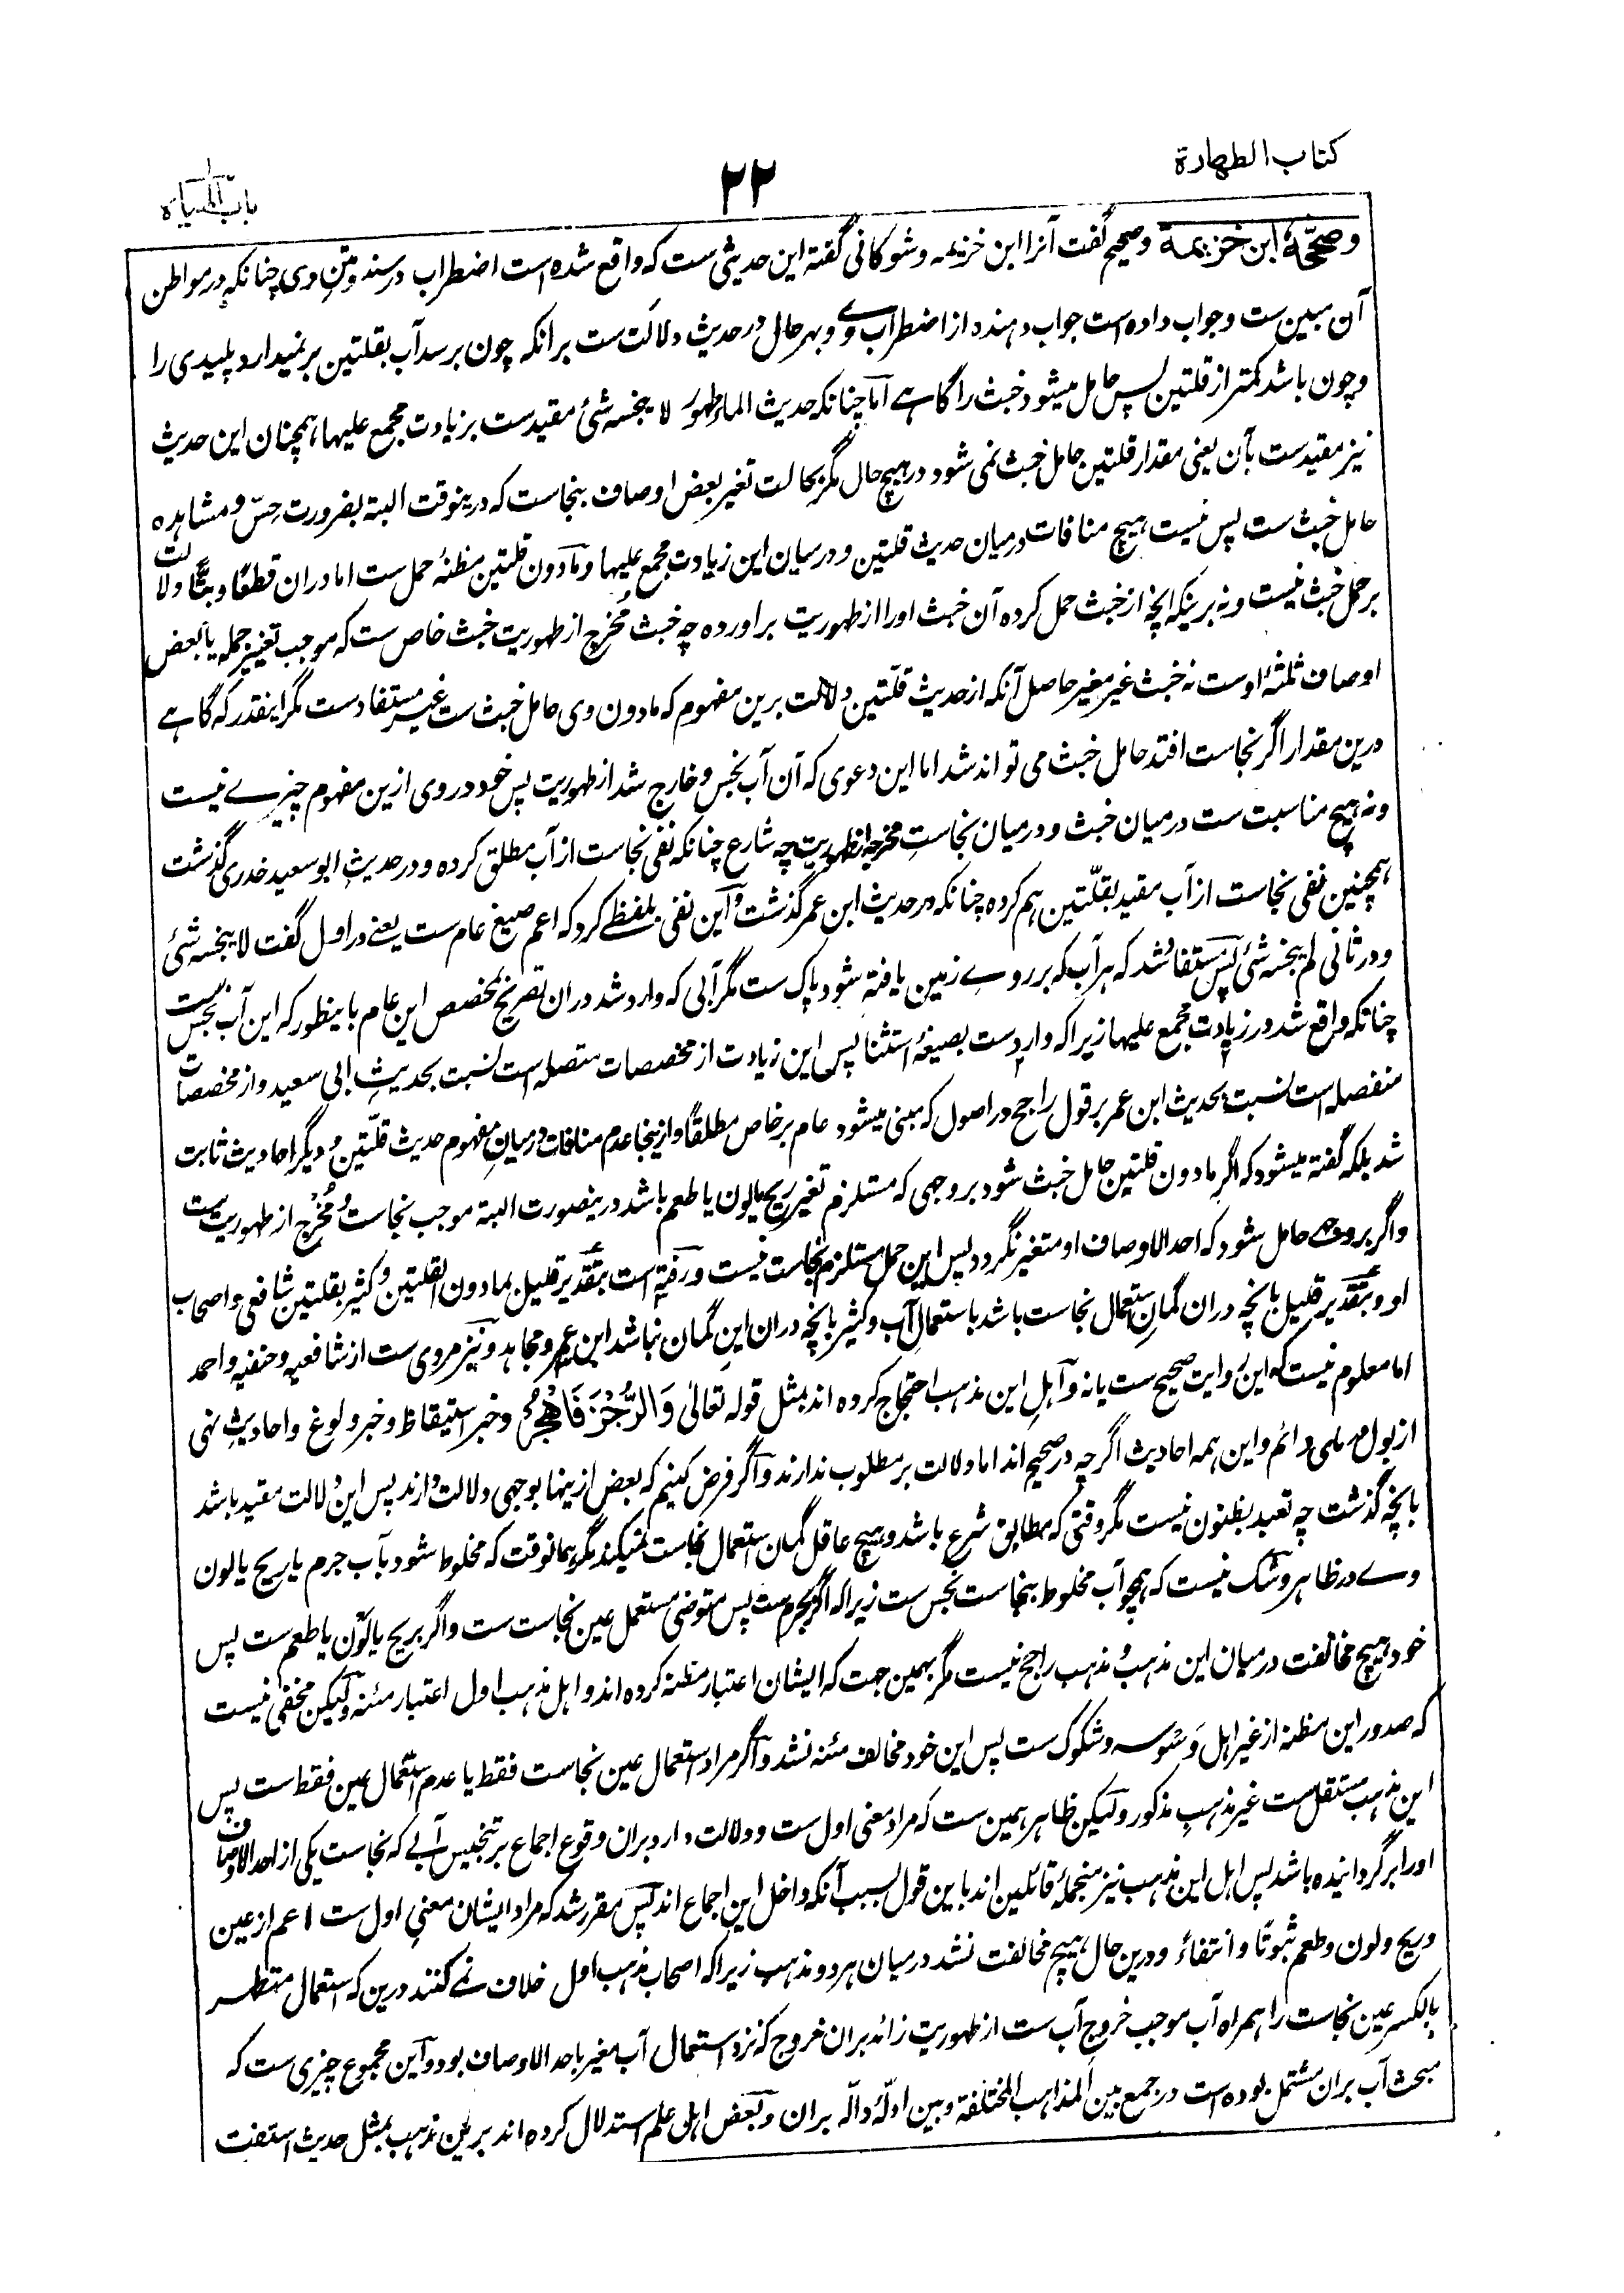 کتاب الطهارة
۲۲
باب المیاه
وصححه ابن خزیمة وصحیح گفت آنرا ابن خزیمه وشوکانی گفته این حدیثی ست که واقع شده است اضطراب در سند ومتن وی چنانکه در مواطن
آن مبین ست وجواب داده است جواب دهنده از اضطراب وے وبهر حال در حدیث دلالت ست برانکه چون برسد آب بقلتین برنمیدارد پلیدی را
وچون باشد کمتر از قلتین پس حامل میشود خبث را گاهے اما چنانکه حدیث الماء طهور لا ینجسه شئ مقیدست بزیادت مجمع علیها همچنان این حدیث
نیز مقیدست بآن یعنی مقدار قلتین حامل خبث نمی شود در هیچ حال مگر بحالت تغیر بعض اوصاف بنجاست که درینوقت البته بضرورت حس ومشاهده
حامل خبث ست پس نیست هیچ منافات درمیان حدیث قلتین ودرمیان این زیادت مجمع علیها ومادون قلتین مظنهٔ حمل ست اما دران قطعًا وبتًّا دلالت
بر حمل خبث نیست ونه برینکه انچه از خبث حمل کرده آن خبث اورا از طهوریت براورده چه خبث مُخرِج از طهوریت خبث خاص ست که موجب تغییر جمله یا بعض
اوصاف ثلثهٔ اوست نه خبث غیر مغیر حاصل آنکه از حدیث قلّتین دلالت برین مفهوم که مادون وی حامل خبث ست غیر مستفادست مگر اینقدر که گاهے
درین مقدار اگر نجاست افتد حامل خبث می تواند شد اما این دعوی که آن آب نجس وخارج شد از طهوریت پس خود در وی ازین مفهوم چیزے نیست
ونه هیچ مناسبت ست درمیان خبث ودرمیان نجاستِ مخرجه از طهوریت چه شارع چنانکه نفی نجاست از آب مطلق کرده ودر حدیثِ ابو سعید خدری گذشت
همچنین نفی نجاست از آب مقید بقلّتین هم کرده چنانکه در حدیث ابن عمر گذشت واین نفی بلفظے کرد که اعم صیغ عام ست یعنے در اول گفت لا ینجسه شئ
ودر ثانی لم ینجسه شئ پس مستفاد شد که هر آب که بر روے زمین یافته شود پاک ست مگر آبی که وارد شد دران تصریح بمخصص این عام باینطور که این آب نجس ست
چنانکه واقع شد در زیادت مجمع علیها زیرا که واردست بصیغهٔ استثنا پس این زیادت از مخصصات متصله است نسبت بحدیثِ ابی سعید واز مخصصات
منفصله است نسبت بحدیث ابن عمر بر قول راجح در اصول که مبنی میشود عام بر خاص مطلقًا وازینجا عدم منافات درمیانِ مفهوم حدیث قلّتین ودیگر احادیث ثابت
شد بلکه گفته میشود که اگر مادون قلتین حامل خبث شود بر وجهی که مستلزم تغیر ریح یا لون یا طعم باشد درینصورت البته موجب نجاست ومُخرِج از طهوریت ست
واگر بروجهے حامل شود که احد الاوصاف او متغیر نگردد پس این حمل مستلزم نجاست نیست ورفته است بتقدیر قلیل بمادون القلتین وکثیر بقلتین شافعی واصحاب
او وبتقدیر قلیل بانچه دران گمان استعمال نجاست باشد باستعمالِ آب وکثیر بانچه دران این گمان نباشد ابن عمر ومجاهد ونیز مروی ست از شافعیه وحنفیه واحمد
اما معلوم نیست که این روایت صحیح ست یا نه واهلِ این مذهب احتجاج کرده اند بمثل قوله تعالٰی وَالرُّجْزَ فَاهْجُرْ وخبر استیقاظ وخبر ولوغ واحادیثِ نهی
از بول در مای دائم واین همه احادیث اگرچه در صحیح اند اما دلالت بر مطلوب ندارند واگر فرض کنیم که بعض ازینها بوجهی دلالت دارند پس این دلالت مقید باشد
بانچه گذشت چه تعبد بظنون نیست مگر وقتی که مطابق شرع باشد وهیچ عاقل گمان استعمال نجاست نمیکند مگر بهمانوقت که مخلوط شود بآب جرم یا ریح یا لون
وے در ظاهر وشک نیست که همچو آب مخلوط بنجاست نجس ست زیرا که اگر بجرم ست پس متوضی مستعمل عین نجاست ست واگر بریح یا لون یا طعم ست پس
خود هیچ مخالفت درمیان این مذهب ومذهب راجح نیست مگر بهمین جهت که ایشان اعتبار مظنه کرده اند واهل مذهب اول اعتبار مئنه ولیکن مخفی نیست
که صدور این مظنه از غیر اهل وَسوسه وشکوک ست پس این خود مخالف مئنه نشد واگر مراد استعمال عین نجاست فقط یا عدم استعمال عین فقط ست پس
این مذهب مستقل ست غیر مذهبِ مذکور ولیکن ظاهر همین ست که مراد معنی اول ست ودلالت دارد بران وقوع اجماع بر تنجیس آبے که نجاست یکی از احد الاوصاف
اورا برگردانیده باشد پس اهل این مذهب نیز منجملهٔ قائلین اند باین قول بسبب آنکه داخل این اجماع اند پس مقرر شد که مراد ایشان معنیِ اول ست اعم از عین
وریح ولون وطعم ثبوتًا وانتفاءً ودرین حال هیچ مخالفت نشد درمیان هر دو مذهب زیرا که اصحاب مذهب اول خلاف نمے کنند درین که استعمال متطهر
بالکسر عین نجاست را همراه آب موجب خروج آب ست از طهوریت زائد بران خروج که نزد استعمال آب مغیر باحد الاوصاف بود واین مجموع چیزی ست که
مبحث آب بران مشتمل بوده است در جمع بین المذاهب المختلفة وبین ادلّهٔ دالّه بران وبعض اهل علم استدلال کرده اند برین مذهب بمثل حدیث استفت